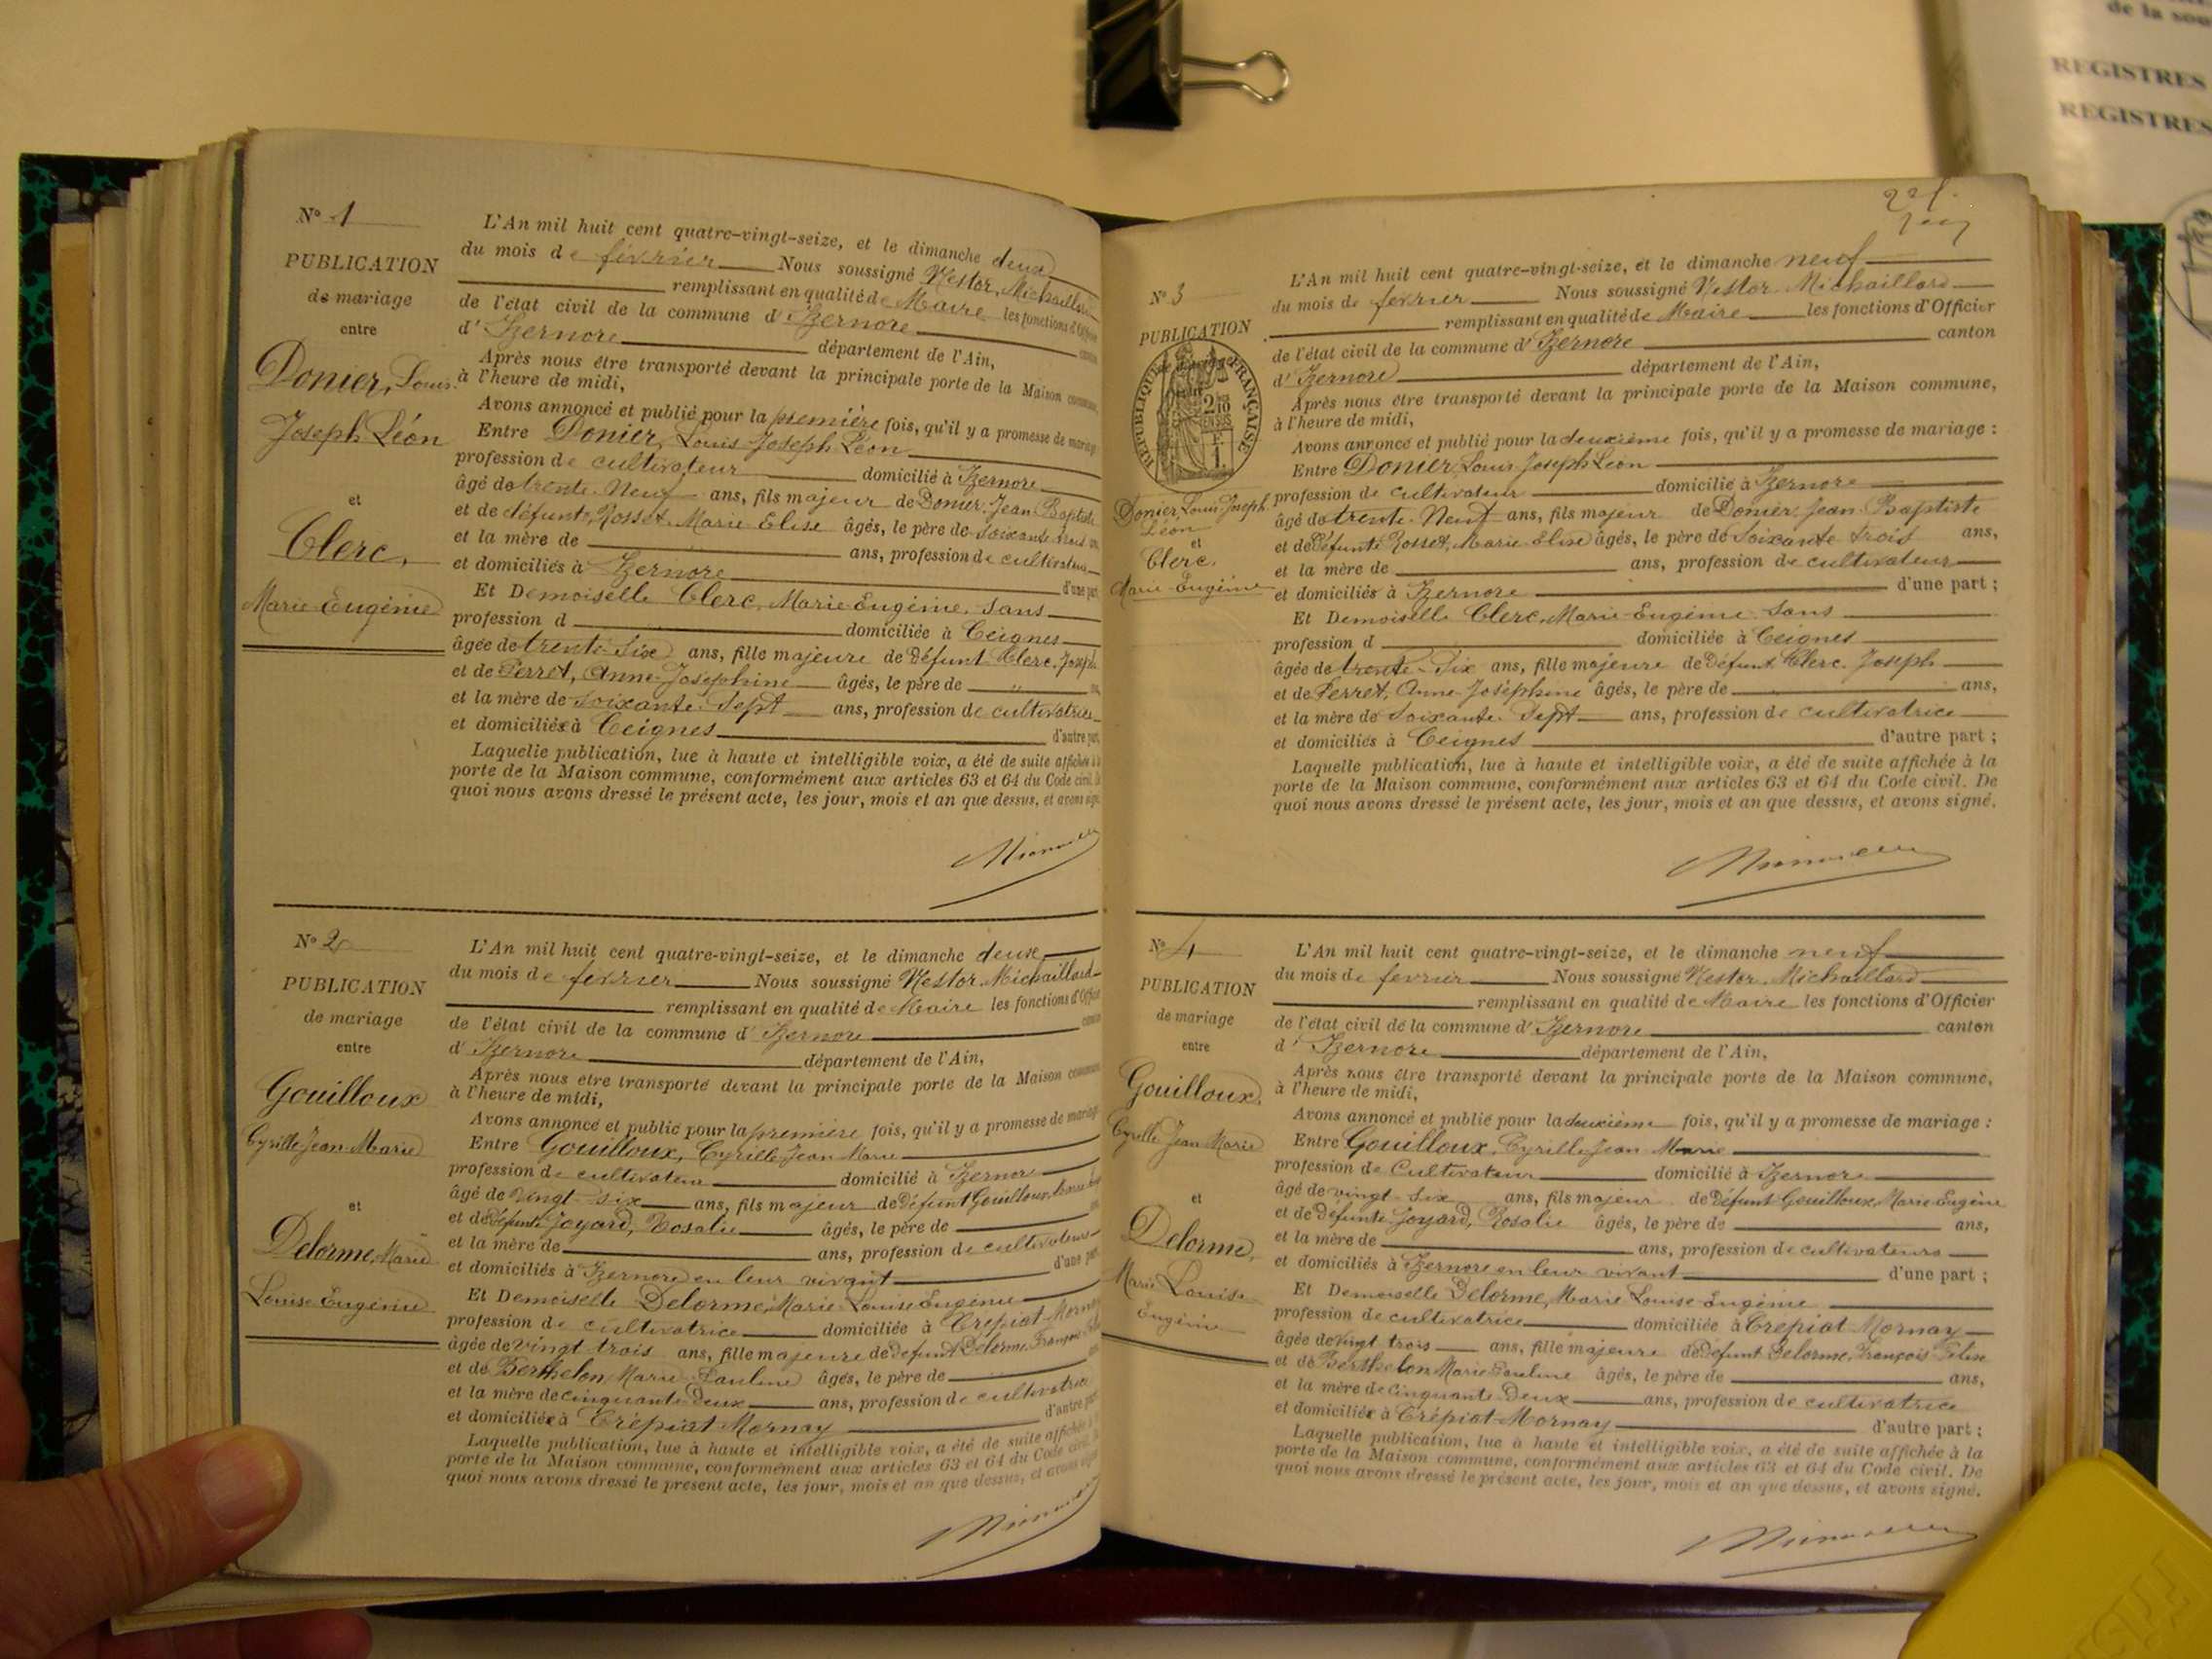 N° 1
PUBLICATION
de mariage
entre
Donier, Louis
Joseph Léon
et
Clerc,
Marie Eugénie
L'An mil huit cent quatre-vingt-seize, et le dimanche deux
du mois de février Nous soussigné Nestor, Michaillard
remplissant en qualité de Maire les fonctions d'Officier
de l'état civil de la commune d'Izernore canton
d'Izernore département de l'Ain,
Après nous être transporté devant la principale porte de la Maison commune,
à l'heure de midi,
Avons annoncé et publié pour la première fois, qu'il y a promesse de mariage
Entre Donier, Louis Joseph Léon
profession de cultivateur domicilié à Izernore
âgé de trente-Neuf ans, fils majeur de Donier, Jean-Baptiste
et de défunte, Rosset, Marie Elise âgés, le père de soixante trois ans,
et la mère de ans, profession de cultivateur
et domiciliés à Izernore d'une part
Et Demoiselle Clerc, Marie-Eugénie, sans
profession d domiciliée à Ceignes
âgée de trente-Six ans, fille majeure de Défunt Clerc, Joseph
et de Perret, Anne-Joséphine âgés, le père de " ans,
et la mère de soixante-Sept ans, profession de cultivatrice
et domiciliés à Ceignes d'autre part
Laquelle publication, lue à haute et intelligible voix, a été de suite affichée à la
porte de la Maison commune, conformément aux articles 63 et 64 du Code civil. De
quoi nous avons dressé le présent acte, les jour, mois et an que dessus, et avons signé
N° 2
PUBLICATION
de mariage
entre
Gouilloux
Cyrille Jean-Marie
et
Delorme, Marie
Louise Eugénie
L'An mil huit cent quatre-vingt-seize, et le dimanche deux
du mois de février Nous soussigné Nestor, Michaillard
remplissant en qualité de Maire les fonctions d'Officier
de l'état civil de la commune d'Izernore canton
d'Izernore département de l'Ain,
Après nous être transporté devant la principale porte de la Maison commune
à l'heure de midi,
Avons annoncé et publié pour la première fois, qu'il y a promesse de mariage
Entre Gouilloux, Cyrille Jean Marie
profession de cultivateur domicilié à Izernore
âgé de vingt-six ans, fils majeur de Défunt Gouilloux
et de Défunte Joyard, Rosalie âgés, le père de ans,
et la mère de ans, profession de cultivateurs
et domiciliés à Izernore en leur vivant d'une part
Et Demoiselle Delorme, Marie-Louise Eugénie
profession de cultivatrice domiciliée à Crépiat-Mornay
âgée de vingt trois ans, fille majeure de Défunt Delorme, François Félix
et de Berthelon, Marie Pauline âgés, le père de ans,
et la mère de cinquante-Deux ans, profession de cultivatrice
et domiciliée à Crépiat Mornay d'autre part
Laquelle publication, lue à haute et intelligible voix, a été de suite affichée à la
porte de la Maison commune, conformément aux articles 63 et 64 du Code civil. De
quoi nous avons dressé le présent acte, les jour, mois et an que dessus, et avons signé
N° 3
PUBLICATION
de mariage
RÉPUBLIQUE FRANÇAISE
2/10 EN SUS
1 F
Donier, Louis Joseph
Léon
et
Clerc,
Marie-Eugénie
L'An mil huit cent quatre-vingt-seize, et le dimanche neuf
du mois de février Nous soussigné Nestor Michaillard
remplissant en qualité de Maire les fonctions d'Officier
de l'état civil de la commune d'Izernore canton
d'Izernore département de l'Ain,
Après nous être transporté devant la principale porte de la Maison commune,
à l'heure de midi,
Avons annoncé et publié pour la deuxième fois, qu'il y a promesse de mariage :
Entre Donier, Louis Joseph Léon
profession de cultivateur domicilié à Izernore
âgé de trente-Neuf ans, fils majeur de Donier, Jean-Baptiste
et de Défunte Rosset, Marie-Elise âgés, le père de Soixante trois ans,
et la mère de ans, profession de cultivateur
et domiciliés à Izernore d'une part ;
Et Demoiselle Clerc, Marie-Eugénie Sans
profession d domiciliée à Ceignes
âgée de trente-Six ans, fille majeure de Défunt Clerc, Joseph
et de Perret, Anne-Joséphine âgés, le père de ans,
et la mère de Soixante-Sept ans, profession de cultivatrice
et domiciliés à Ceignes d'autre part ;
Laquelle publication, lue à haute et intelligible voix, a été de suite affichée à la
porte de la Maison commune, conformément aux articles 63 et 64 du Code civil. De
quoi nous avons dressé le présent acte, les jour, mois et an que dessus, et avons signé.
N° 4
PUBLICATION
de mariage
entre
Gouilloux,
Cyrille Jean Marie
et
Delorme,
Marie Louise
Eugénie
L'An mil huit cent quatre-vingt-seize, et le dimanche neuf
du mois de février Nous soussigné Nestor, Michaillard
remplissant en qualité de Maire les fonctions d'Officier
de l'état civil de la commune d'Izernore canton
d'Izernore département de l'Ain,
Après nous être transporté devant la principale porte de la Maison commune,
à l'heure de midi,
Avons annoncé et publié pour la deuxième fois, qu'il y a promesse de mariage :
Entre Gouilloux, Cyrille Jean Marie
profession de Cultivateur domicilié à Izernore
âgé de vingt-six ans, fils majeur de Défunt Gouilloux, Marie Eugène
et de Défunte Joyard, Rosalie âgés, le père de ans,
et la mère de ans, profession de cultivateurs
et domiciliés à Izernore en leur vivant d'une part ;
Et Demoiselle Delorme, Marie Louise-Eugénie
profession de cultivatrice domiciliée à Crépiat-Mornay
âgée de vingt trois ans, fille majeure de Défunt Delorme, François Félix
et de Berthelon Marie Pauline âgés, le père de ans,
et la mère de Cinquante-Deux ans, profession de cultivatrice
et domiciliée à Crépiat-Mornay d'autre part ;
Laquelle publication, lue à haute et intelligible voix, a été de suite affichée à la
porte de la Maison commune, conformément aux articles 63 et 64 du Code civil. De
quoi nous avons dressé le présent acte, les jour, mois et an que dessus, et avons signé.
de la sou
REGISTRES
REGISTRES